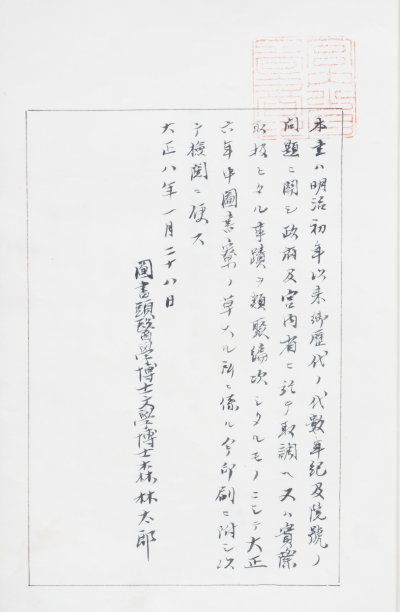 本書ハ明治初年以来御歴代ノ代数年紀及院號ノ
問題ニ関シ政府及宮内省ニ於テ取調ヘ又ハ實際
取扱ヒタル事蹟ヲ類聚編次シタルモノニシテ大正
六年中圖書寮ノ草スル所ニ係ル今印刷ニ附シ以
テ検閲ニ便ス
大正八年一月二十八日
圖書頭醫學博士文學博士森林太郎